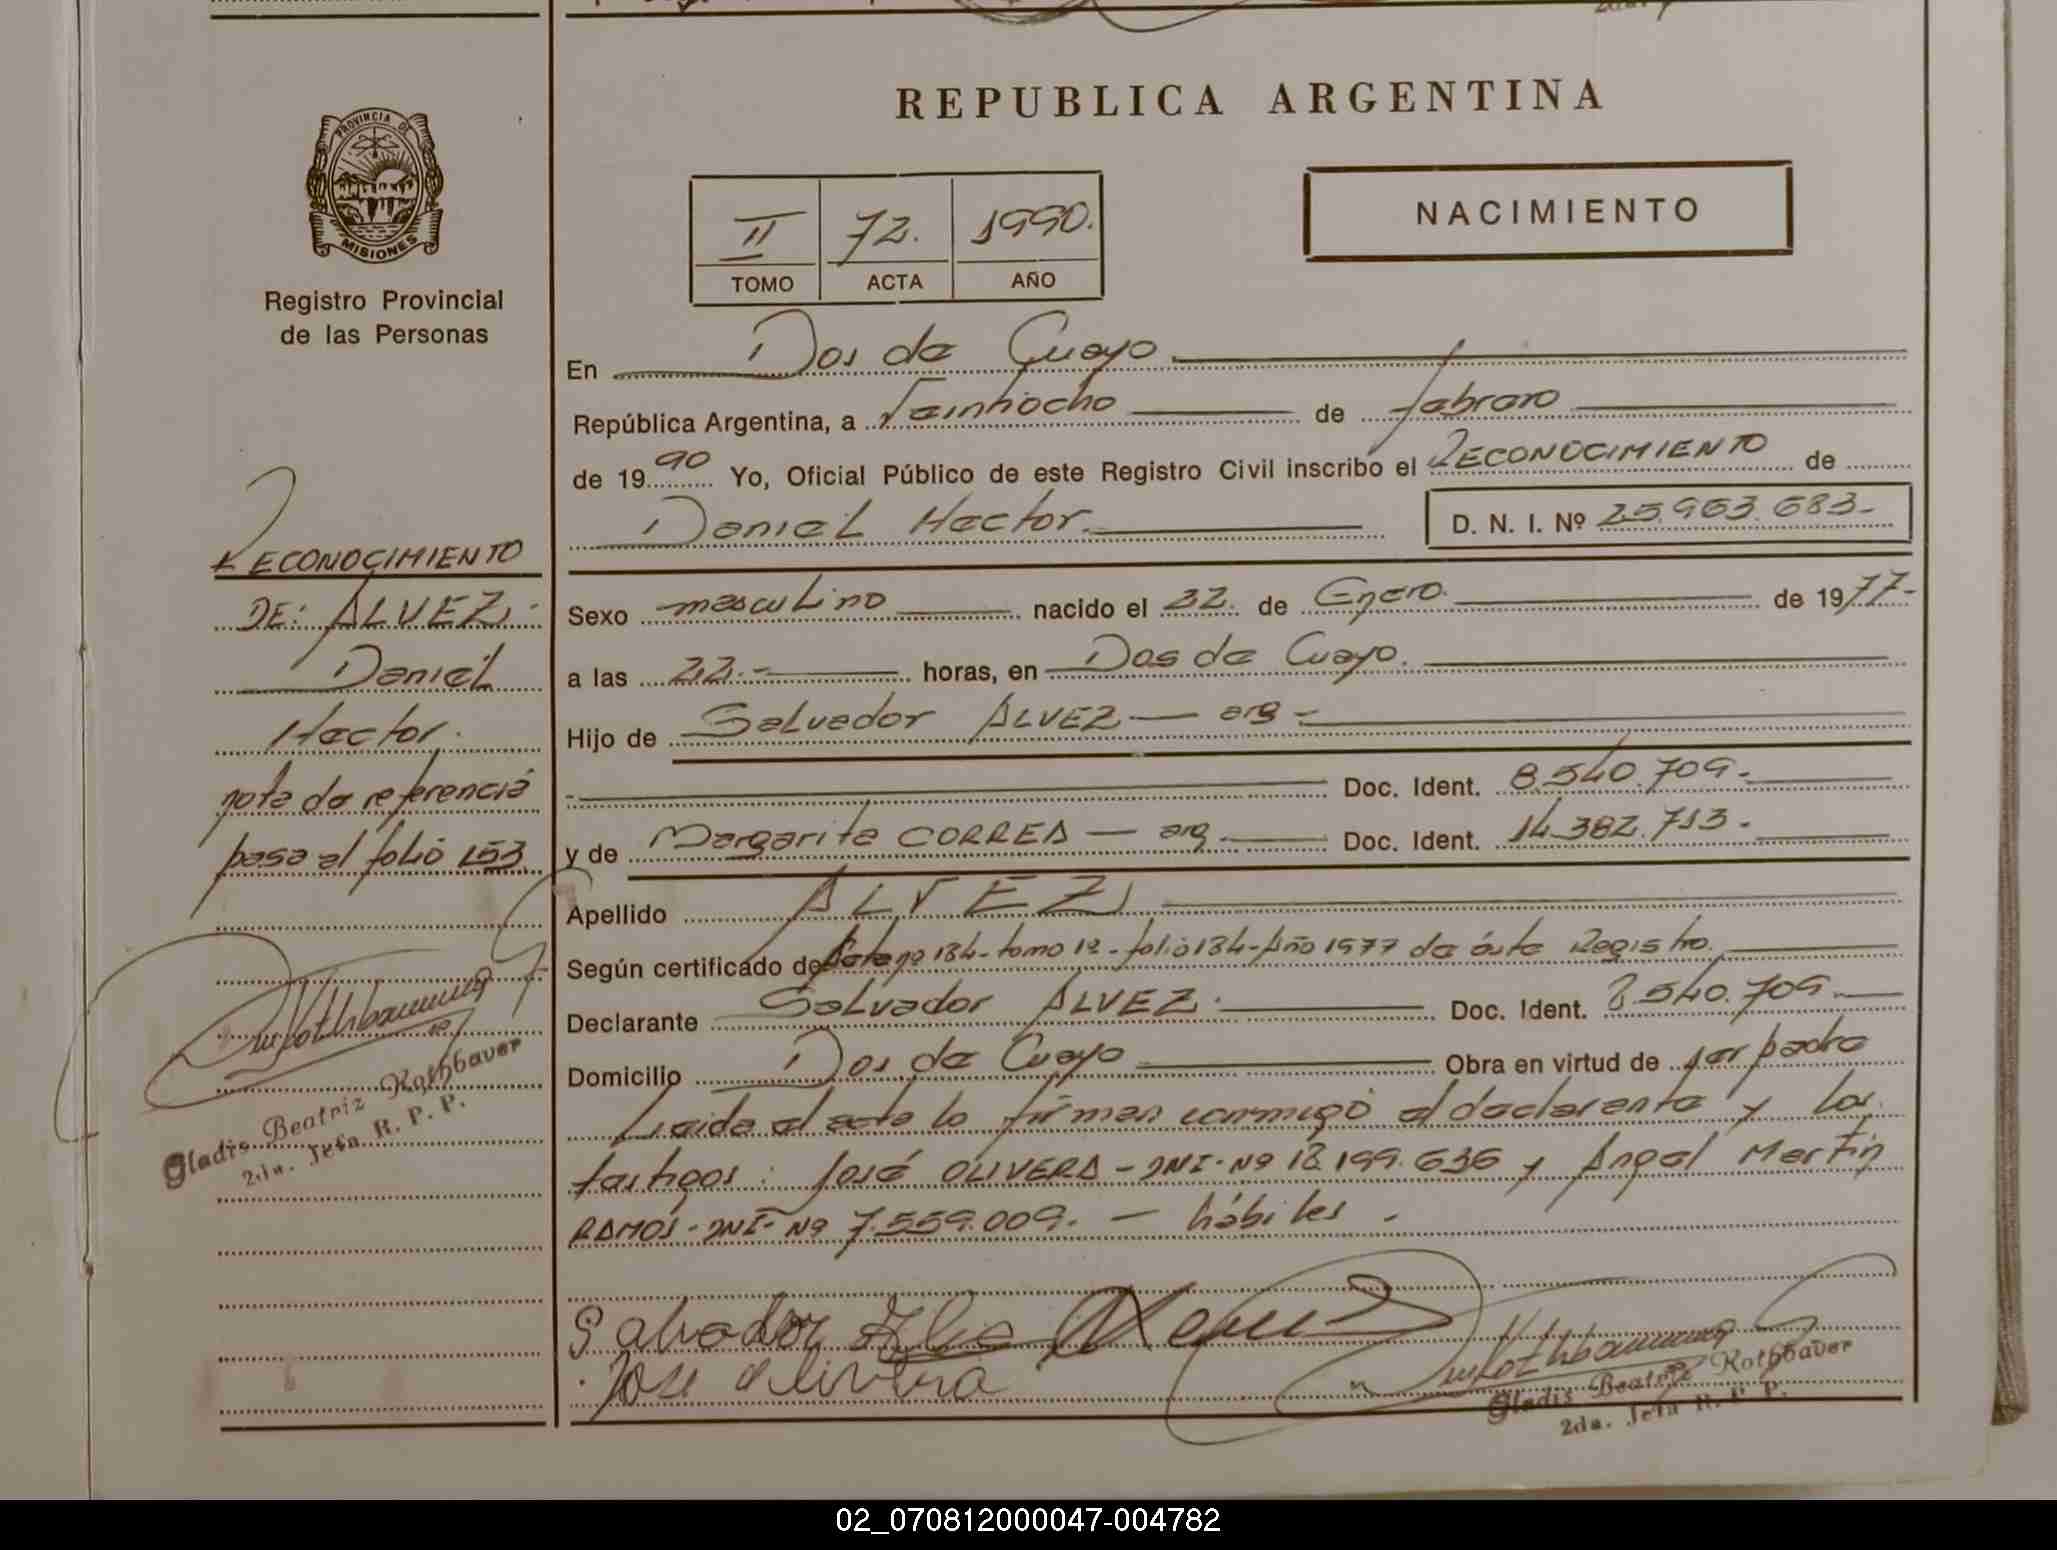 REPUBLICA ARGENTINA
PROVINCIA DE
MISIONES
Registro Provincial
de las Personas
II 72. 1990.
TOMO ACTA AÑO
NACIMIENTO
En Dos de Cuayo
República Argentina, a Veintiocho de febrero
de 1990 Yo, Oficial Público de este Registro Civil inscribo el RECONOCIMIENTO de
Daniel Hector D. N. I. Nº 25.963.683-
RECONOCIMIENTO
DE: ALVEZ
Daniel
Hector.
nota de referencia
pasa al folio 153
Gladis Beatriz Rothbaver
2da. Jefa R. P. P.
Sexo masculino nacido el 22. de Enero. de 1977-
a las 22.- horas, en Dos de Cuayo.
Hijo de Salvador ALVEZ — arg -
Doc. Ident. 8.540.709.-
y de Margarita CORREA — arg. Doc. Ident. 14.382.713.-
Apellido ALVEZ
Según certificado de Acta nº 184- tomo 1º- folio 184- Año 1977 de éste Registro.
Declarante Salvador ALVEZ. Doc. Ident. 8.540.709.-
Domicilio Dos de Cuayo Obra en virtud de ser padre
Leida el acta la firman conmigo el declarante y los
testigos: José OLIVERA - DNI- Nº 18.199.636 y Angel Martin
RAMOS- DNI- Nº 7.559.009. — hábiles.
Salvador
Jose olivera
Gladis Beatriz Rothbaver
2da. Jefa R. P. P.
02_070812000047-004782